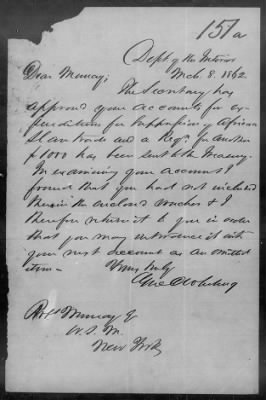 151a
Dept of the Interior
Mch 8. 1862
Dear Murray;
The Secretary has
approved your accounts for ex-
penditures for suppression of African
Slave trade and a Reqn for another
$1000 has been sent to the Treasury.
In examining your account I
found that you had not included
therein the enclosed voucher & I
therefore return it to you in order
that you may introduce it into
your next account as an omitted
item—
Yours truly
Robt Murray Esq
U.S.M.
New York